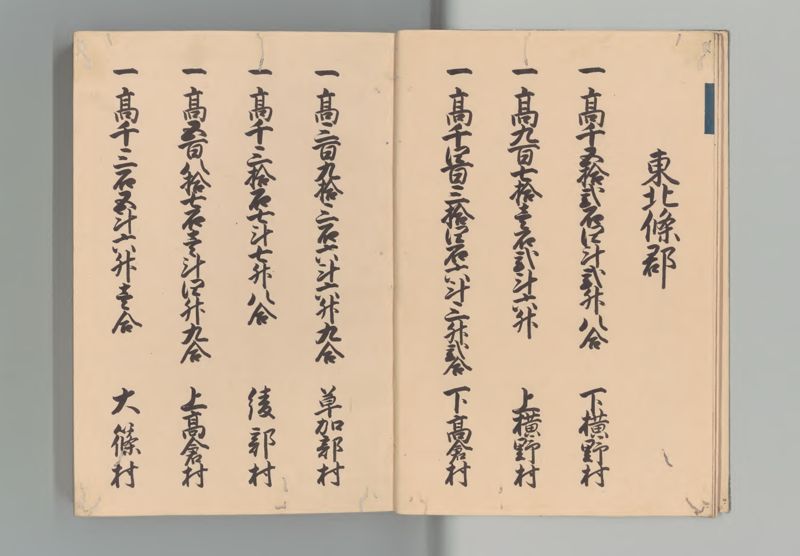 東北條郡
一高千五拾弐石四斗弐升八合 下横野村
一高九百七拾壱石弐斗六升 上横野村
一高千四百三拾四石六斗三升弐合 下高倉村
一高三百九拾三石六斗六升九合 草加部村
一高千三拾石七斗七升八合 綾部村
一高五百八拾七石壱斗四升九合 上高倉村
一高千三石五斗六升壱合 大篠村